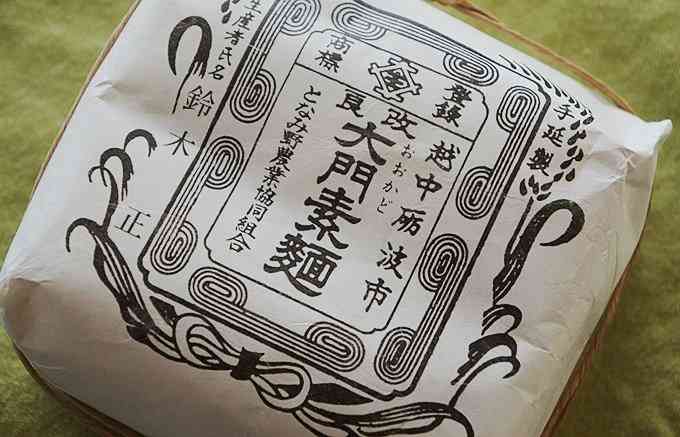 手延製
登録
商標
越中砺波市
改良
おおかど
大門素麵
となみ野農業協同組合
生産者氏名
鈴木正